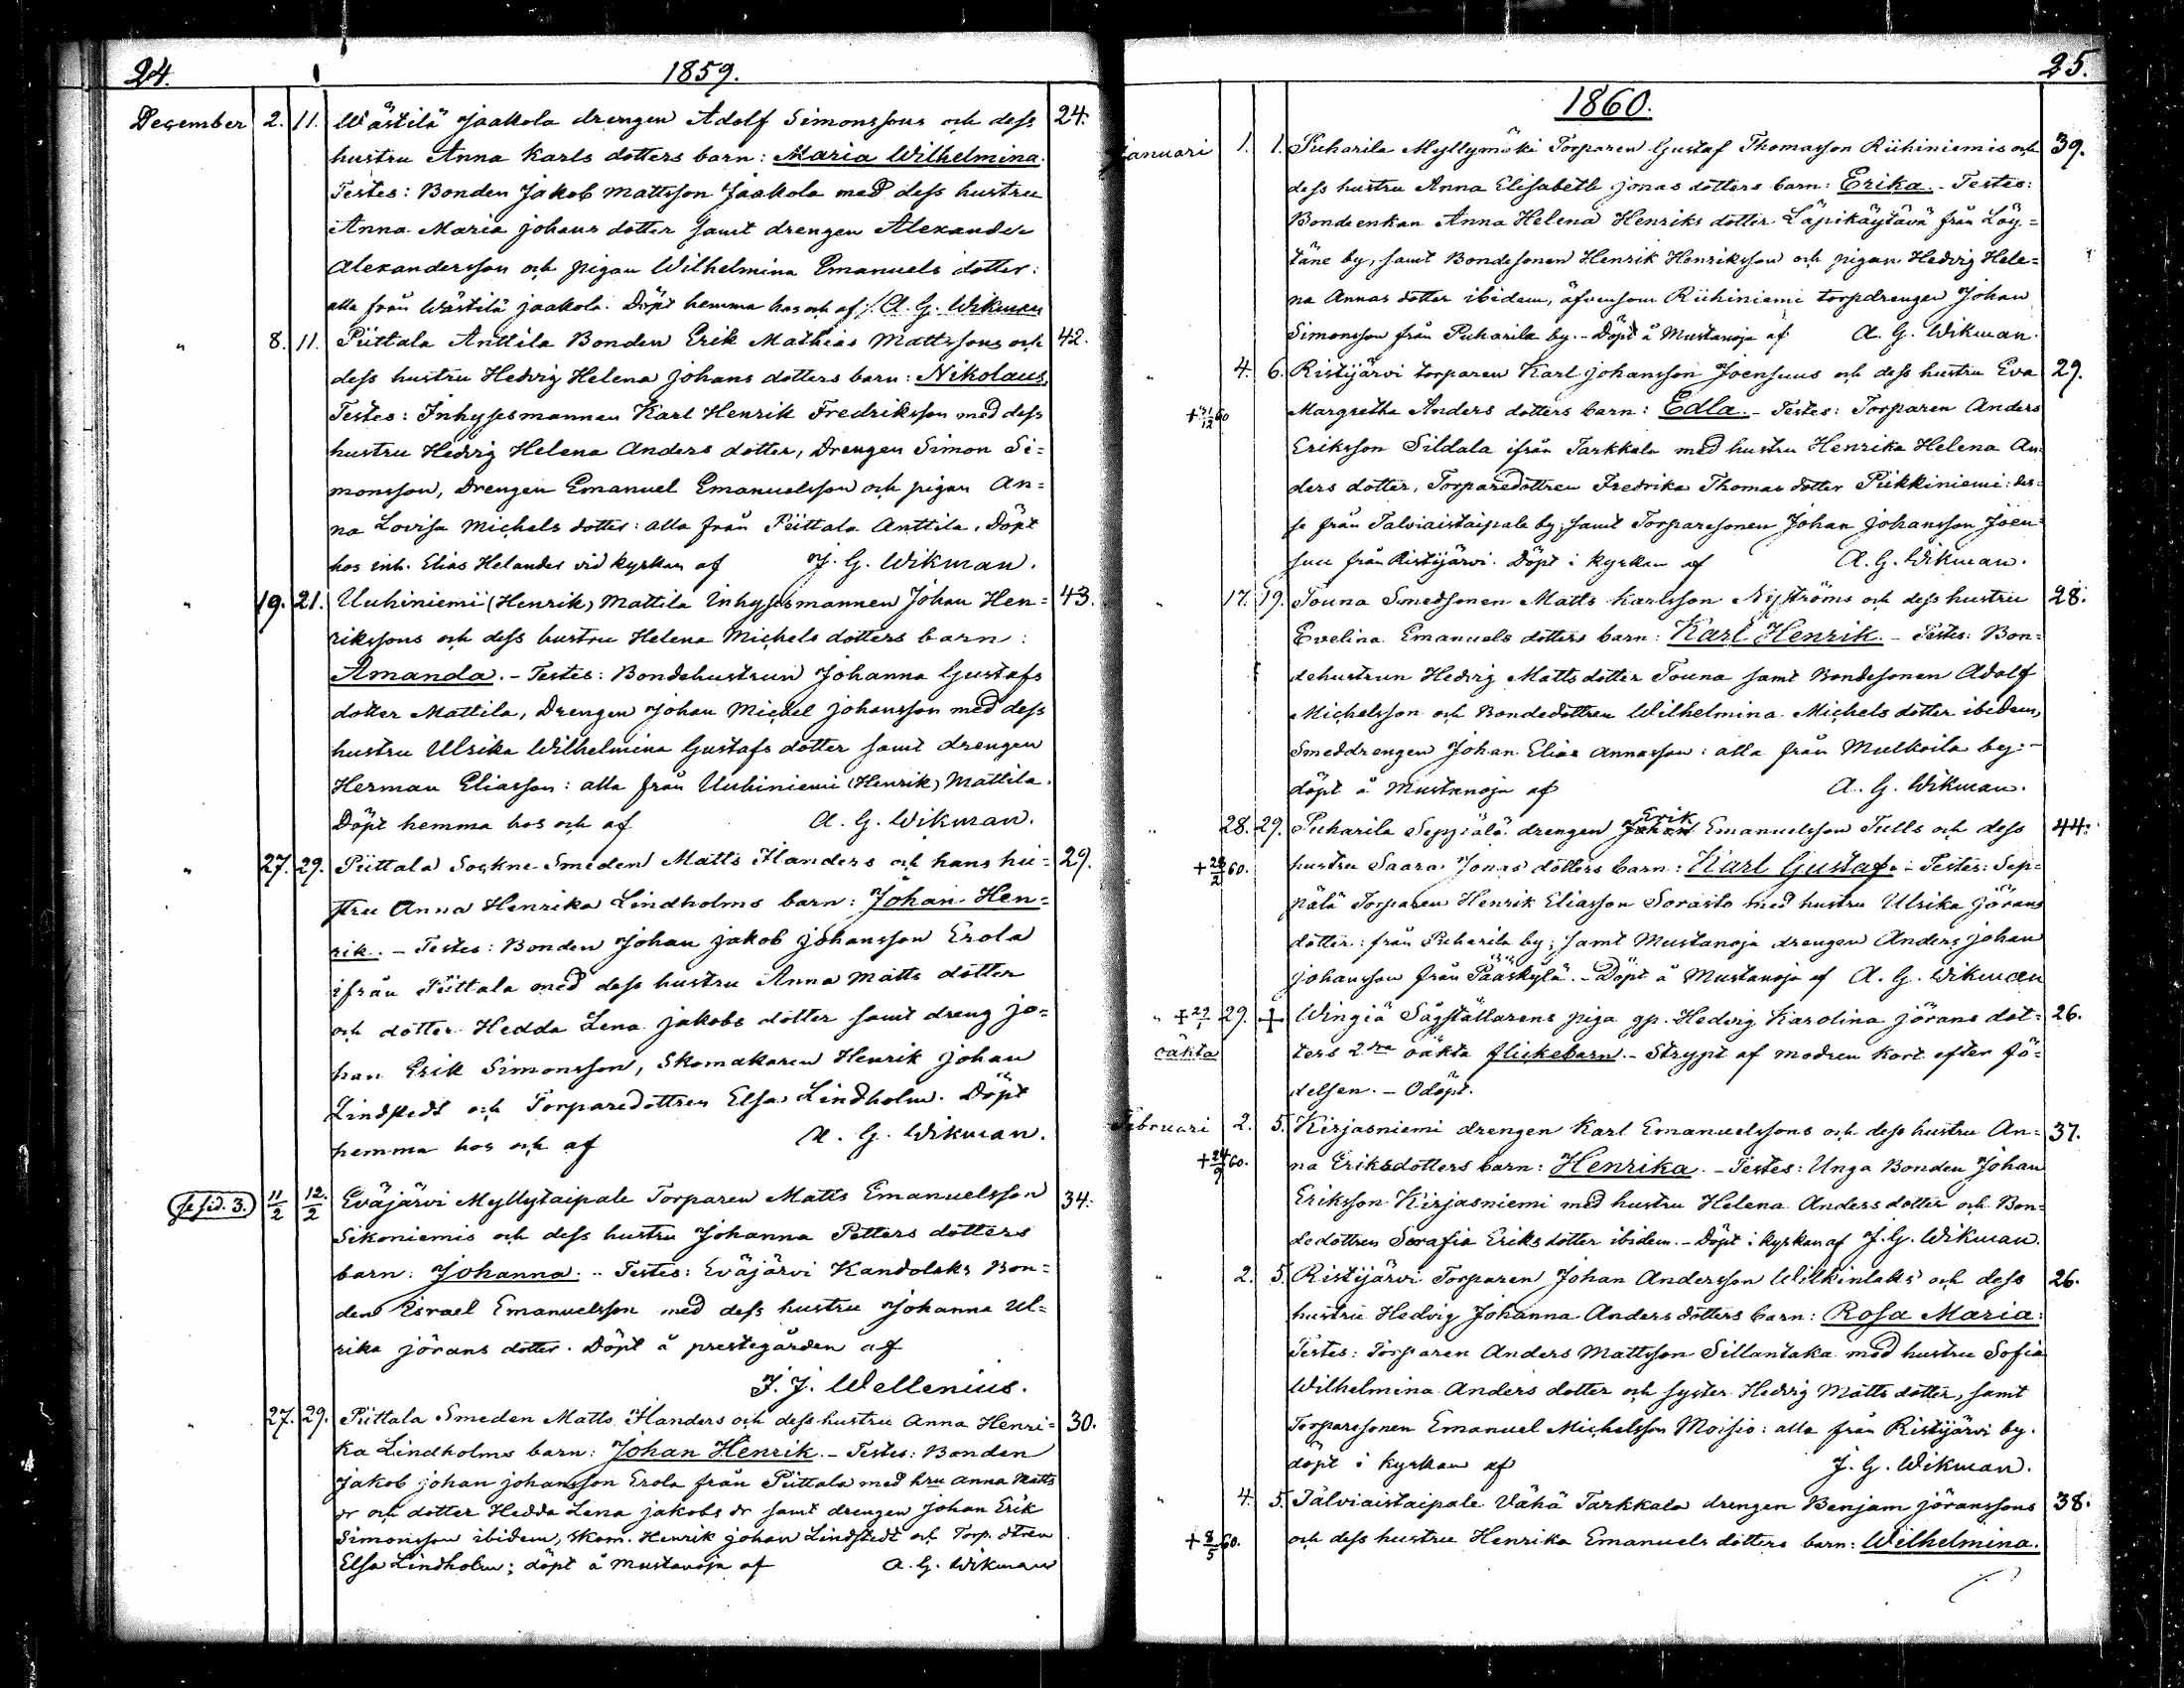 24. 1859.
December 2. 11. Wästilä Jaakola drengen Adolf Simonssons och dess 24.
hustru Anna Karls dotters barn: Maria Wilhelmina.
Testes: Bonden Jakob Mattsson Jaakola med dess hustru
Anna Maria Johans dotter samt drengen Alexander
Alexandersson och pigan Wilhelmina Emanuels dotter:
alla från Wästilä Jaakola. Döpt hemma hos och af A. G. Wikman
" 8. 11. Pittala Anttila Bonden Erik Mathias Mattssons och 42.
dess hustru Hedvig Helena Johans dotters barn: Nikolaus.
Testes: Inhysesmannen Karl Henrik Fredriksson med dess
hustru Hedvig Helena Anders dotter, Drengen Simon Si=
monsson, Drengen Emanuel Emanuelsson och pigan An=
na Lovisa Michels dotter: alla från Pittala Anttila. Döpt
hos inh. Elias Helander vid kyrkan af J. G. Wikman.
" 19. 21. Uuhiniemi (Henrik) Mattila Inhysesmannen Johan Hen= 43.
rikssons och dess hustru Helena Michels dotters barn:
Amanda. - Testes: Bondehustrun Johanna Gustafs
dotter Mattila, Drengen Johan Michel Johansson med dess
hustru Ulrika Wilhelmina Gustafs dotter samt drengen
Herman Eliasson: alla från Uuhiniemi (Henrik) Mattila.
Döpt hemma hos och af A. G. Wikman.
" 27. 29. Pittala Sockne Smeden Matts Flanders och hans hu= 29.
stru Anna Henrika Lindholms barn: Johan Hen=
rik. - Testes: Bonden Johan Jakob Johansson Erola
ifrån Pittala med dess hustru Anna Matts dotter
och dotter Hedda Lena Jakobs dotter samt dreng Jo=
han Erik Simonsson, Skomakaren Henrik Johan
Lindstedt och Torparedottren Elsa Lindholm. Döpt
hemma hos och af A. G. Wikman.
se sid. 3. 11/2 12/2 Eväjärvi Myllytaipale Torparen Matts Emanuelsson 34.
Sikoniemis och dess hustru Johanna Petters dotters
barn: Johanna. - Testes: Eväjärvi Kandolaks Bon=
den Israel Emanuelsson med dess hustru Johanna Ul=
rika Jörans dotter. Döpt å prestegården af
J. J. Wellenius.
" 27. 29. Pittala Smeden Matts Flanders och dess hustru Anna Henri= 30.
ka Lindholms barn: Johan Henrik. - Testes: Bonden
Jakob Johan Johansson Erola från Pittala med hru Anna Matts
dr och dotter Hedda Lena Jakobs dr samt drengen Johan Erik
Simonsson ibidem, Skom. Henrik Johan Lindstedt och Torp. dtren
Elsa Lindholm; döpt å Mustanoja af A. G. Wikman
25.
1860.
Januari 1. 1. Puharila Myllymäki Torparen Gustaf Thomasson Riihiniemis och 39.
dess hustru Anna Elisabeth Jonas dotters barn: Erika. - Testes:
Bondeenkan Anna Helena Henriks dotter Läpikäytävä från Löy=
täne by, samt Bondesonen Henrik Henriksson och pigan Hedvig Hele=
na Annas dotter ibidem, äfvensom Riihiniemi torpdrengen Johan
Simonsson från Puharila by. - Döpt å Mustanoja af A. G. Wikman.
" 4. 6. Ristijärvi torparen Karl Johansson Joensuus och dess hustru Eva 29.
+31/12 60 Margretha Anders dotters barn: Edla. - Testes: Torparen Anders
Eriksson Sildala ifrån Tarkkala med hustru Henrika Helena An=
ders dotter, Torparedottren Fredrika Thomas dotter Pükkiniemi: des=
se från Talviaistaipale by, samt Torparesonen Johan Johansson Joen=
suu från Ristijärvi. Döpt i kyrkan af A. G. Wikman.
" 17. 19. Touna Smedsonen Matts Karlsson Nyströms och dess hustru 28.
Evelina Emanuels dotters barn: Karl Henrik. - Testes: Bon=
dehustrun Hedvig Matts dotter Touna samt Bondesonen Adolf
Michelsson och Bondedottren Wilhelmina Michels dotter ibidem,
Smeddrengen Johan Elias Annasson: alla från Mulkoila by. -
döpt å Mustanoja af A. G. Wikman.
" 28. 29. Puharila Seppälä drengen Johan Erik Emanuelsson Tulls och dess 44.
+28/2 60. hustru Saara Jonas dotters barn: Karl Gustaf. - Testes: Sep=
pälä Torparen Henrik Eliasson Sorasto med hustru Ulrika Jörans
dotter: från Puharila by; samt Mustanoja drengen Anders Johan
Johansson från Pääskylä. - Döpt å Mustanoja af A. G. Wikman
" +29/1 29. + Wingiä Sågställarens piga gp. Hedvig Karolina Jörans dot= 26.
oäkta ters 2dra oäkta flickebarn. - Strypt af modren kort efter fö=
delsen. - Odöpt.
Februari 2. 5. Kirjasniemi drengen Karl Emanuelssons och dess hustru An= 37.
+24/9 60. na Eriksdotters barn: Henrika. - Testes: Unga Bonden Johan
Eriksson Kirjasniemi med hustru Helena Anders dotter och Bon=
dedottren Serafia Eriks dotter ibidem. - Döpt i kyrkan af J. G. Wikman.
" 2. 5. Ristijärvi Torparen Johan Andersson Wilkinlaks och dess 26.
hustru Hedvig Johanna Anders dotters barn: Rosa Maria:
Testes: Torparen Anders Mattsson Sillantaka med hustru Sofia
Wilhelmina Anders dotter och syster Hedvig Matts dotter, samt
Torparesonen Emanuel Michelsson Moisio: alla från Ristijärvi by.
döpt i kyrkan af J. G. Wikman.
" 4. 5. Talviaistaipale Vähä Tarkkala drengen Benjam Jöranssons 38.
+8/5 60. och dess hustru Henrika Emanuels dotters barn: Wilhelmina.